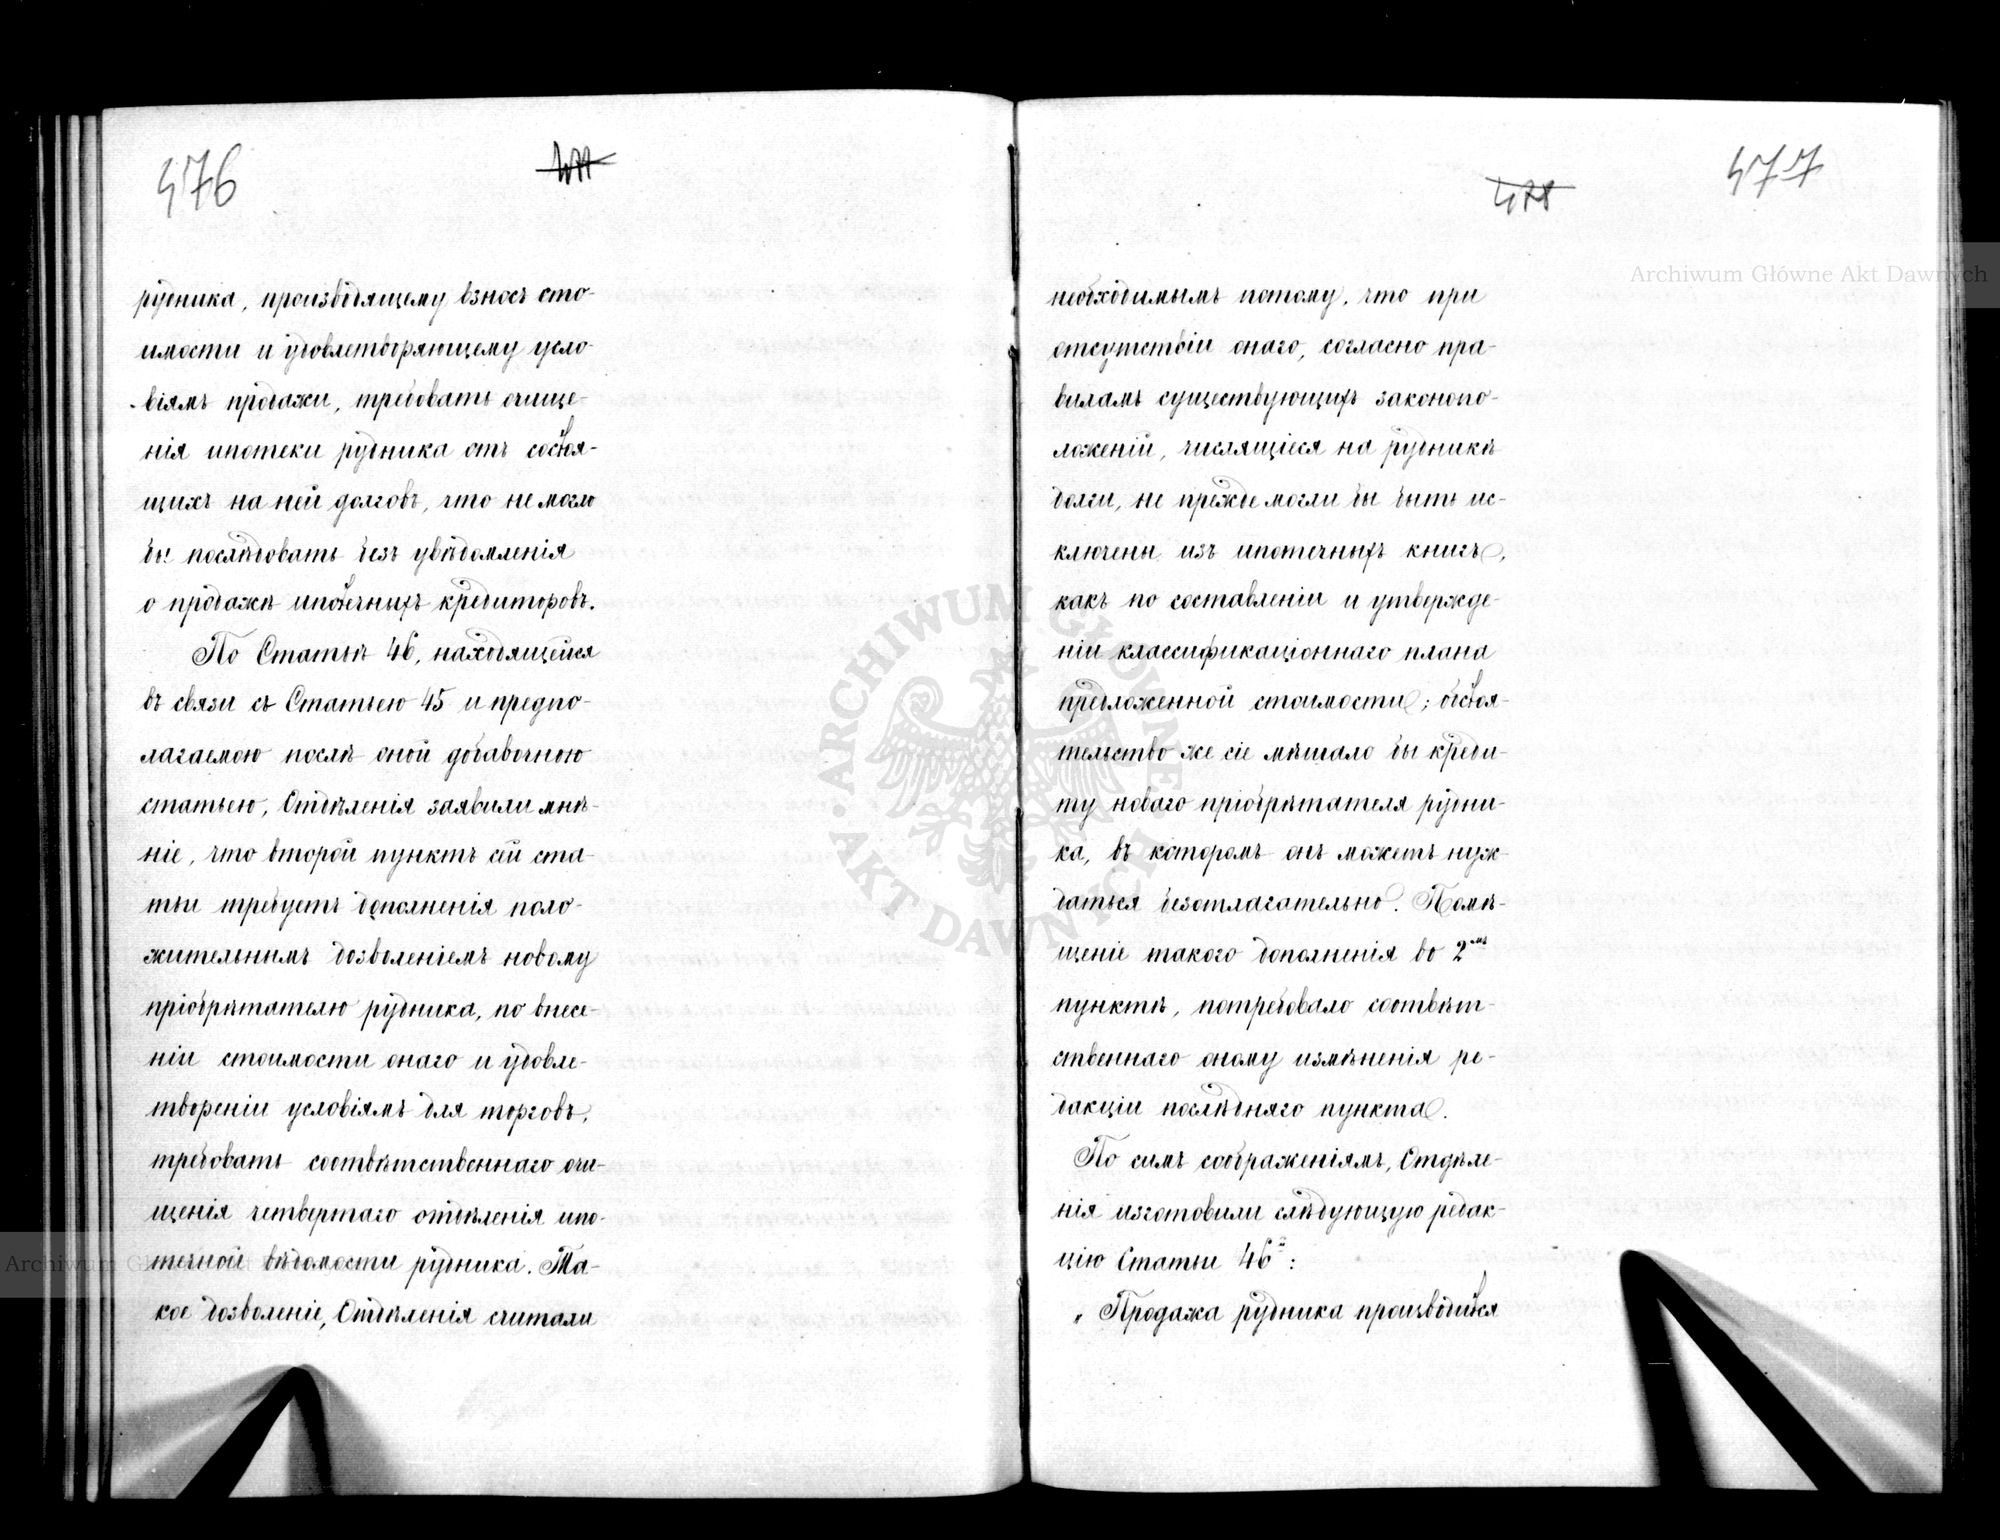 476
477
рудника, производящему взносъ сто-
имости и удовлетворяющему усло-
віямъ продажи, требовать очище-
нія ипотеки рудника отъ состоя-
щихъ на ней долговъ, что не могло
бы послѣдовать безъ увѣдомленія
о продажѣ ипотечныхъ кредиторовъ.
По Статьѣ 46, находящейся
въ связи съ Статьею 45 и предпо-
лагаемою послѣ оной добавочною
статьею, Отдѣленія заявили мнѣ-
ніе, что второй пунктъ сей ста-
тьи требуетъ дополненія поло-
жительнымъ дозволеніемъ новому
пріобрѣтателю рудника, по внесе-
ніи стоимости онаго и удовле-
твореніи условіямъ для торговъ,
требовать соотвѣтственнаго очи-
щенія четвертаго отдѣленія ипо-
течной вѣдомости рудника. Та-
кое дозволеніе, Отдѣленія считали
478
477
необходимымъ потому, что при
отсутствіи онаго, согласно пра-
виламъ существующихъ законопо-
ложеній, числящіеся на рудникѣ
долги, не прежде могли бы быть ис-
ключены изъ ипотечныхъ книгъ,
какъ по составленіи и утвержде-
ніи классификаціоннаго плана
предложенной стоимости; обстоя-
тельство же сіе мѣшало бы креди-
ту новаго пріобрѣтателя рудни-
ка, въ которомъ онъ можетъ нуж-
даться безотлагательно. Помѣ-
щеніе такого дополненія во 2мъ
пунктѣ, потребовало соотвѣт-
ственнаго оному измѣненія ре-
дакціи послѣдняго пункта.
По симъ соображеніямъ, Отдѣле-
нія изготовили слѣдующую редак-
цію Статьи 46й:
„ Продажа рудника производится
Archiwum Główne Akt Dawnych
ARCHIWUM GŁÓWNE AKT DAWNYCH